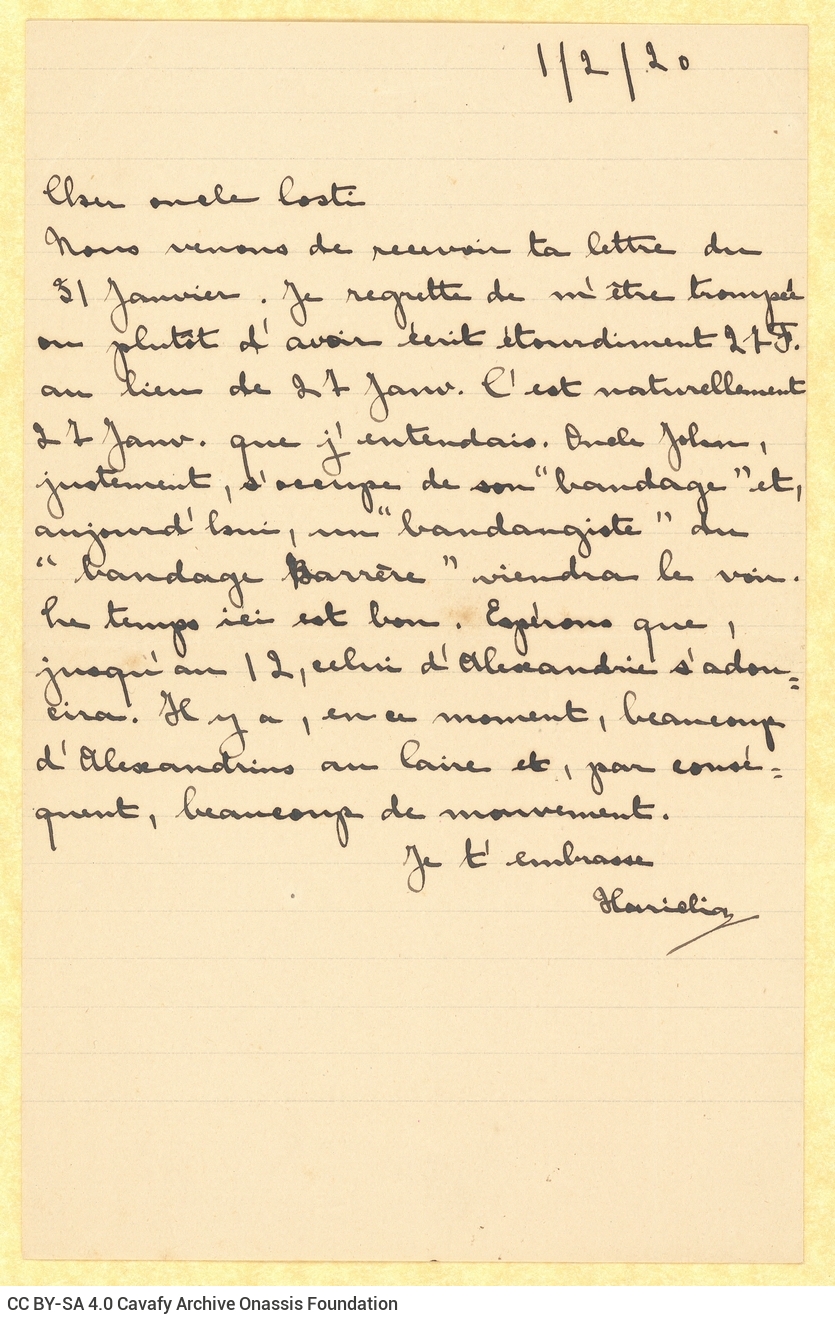 1/2/20
Cher oncle Costi
Nous venons de recevoir ta lettre du
31 Janvier. Je regrette de m'être trompée
ou plutôt d'avoir écrit étourdiment 27 F.
au lieu de 27 Janv. C'est naturellement
27 Janv. que j'entendais. Oncle John,
justement, s'occupe de son "bandage" et,
aujourd'hui, un "bandangiste" du
"bandage Barrère" viendra le voir.
Le temps ici est bon. Espérons que,
jusqu'au 12, celui d'Alexandrie s'adou=
cira. Il y a, en ce moment, beaucoup
d'Alexandrins au Caire et, par consé=
quent, beaucoup de mouvement.
Je t'embrasse
Hariclia
CC BY-SA 4.0 Cavafy Archive Onassis Foundation